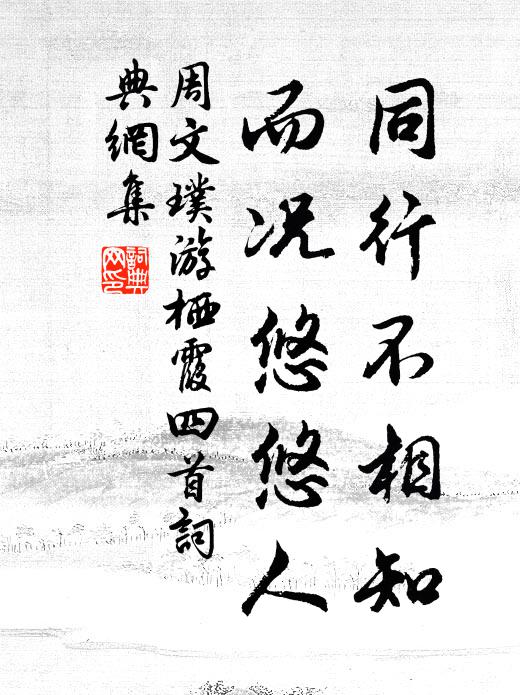 同行不相知
而况悠悠人
周文璞游栖霞四首詞
典網集
詞典網印